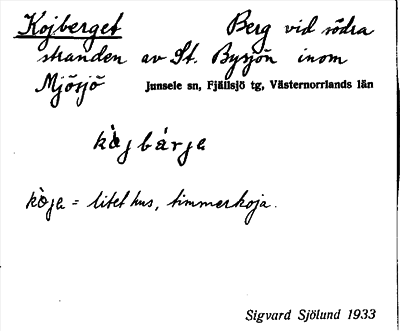 Kojberget Berg vid södra
stranden av St. Bysjön inom
Mjösjö Junsele sn, Fjällsjö tg, Västernorrlands län
kòjbárjɐ
kòjɐ = litet hus, timmerkoja.
Sigvard Sjölund 1933